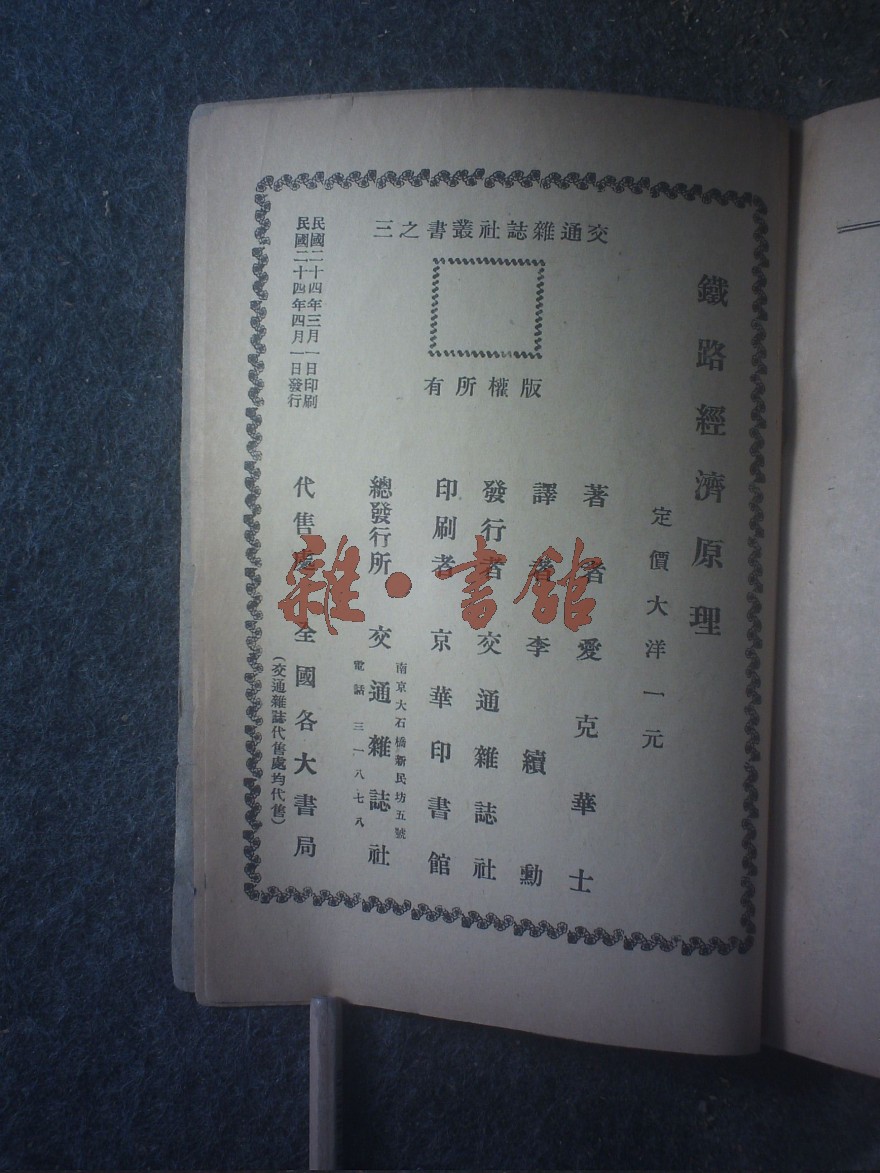 鐵路經濟原理
定價大洋一元
著者 愛克華士
譯者 李續勳
發行者 交通雜誌社
印刷者 京華印書館
總發行所 交通雜誌社
南京大石橋新民坊五號
電話 三一八七八
代售處 全國各大書局
(交通雜誌代售處均代售)
交通雜誌社叢書之三
版權所有
民國二十四年三月一日印刷
民國二十四年四月一日發行
雜·書館